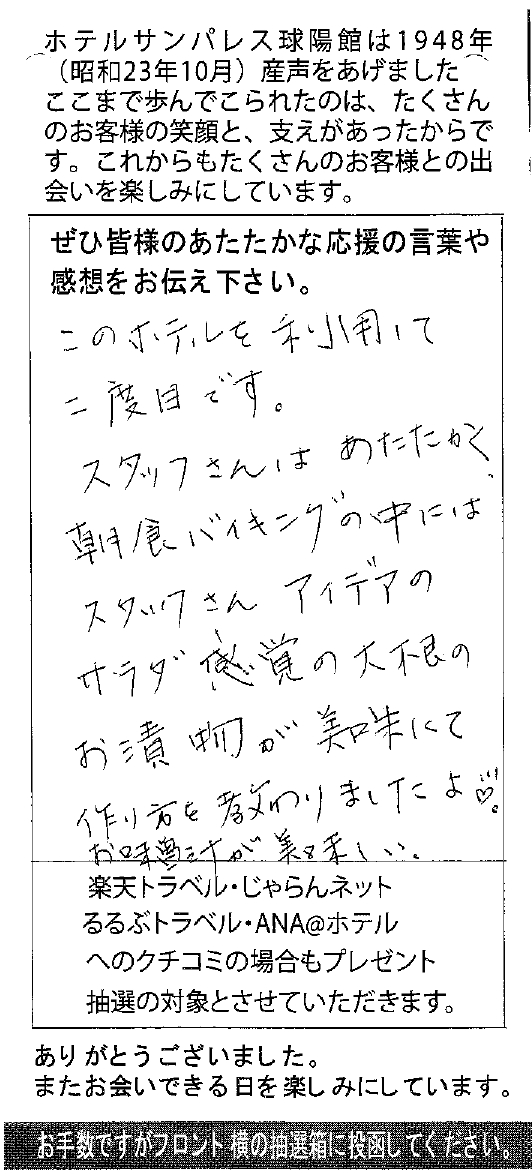 ホテルサンパレス球陽館は1948年
（昭和23年10月）産声をあげました
ここまで歩んでこられたのは、たくさん
のお客様の笑顔と、支えがあったからで
す。これからもたくさんのお客様との出
会いを楽しみにしています。
ぜひ皆様のあたたかな応援の言葉や
感想をお伝え下さい。
このホテルを利用して
二度目です。
スタッフさんは あたたかく、
朝食バイキングの中には
スタッフさん アイデアの
サラダ感覚の大根の
お漬物が 美味にて
作り方を教わりましたよ♡。
お味噌汁が美味しい。
楽天トラベル・じゃらんネット
るるぶトラベル・ANA@ホテル
へのクチコミの場合もプレゼント
抽選の対象とさせていただきます。
ありがとうございました。
またお会いできる日を楽しみにしています。
お手数ですがフロント横の抽選箱に投函してください。